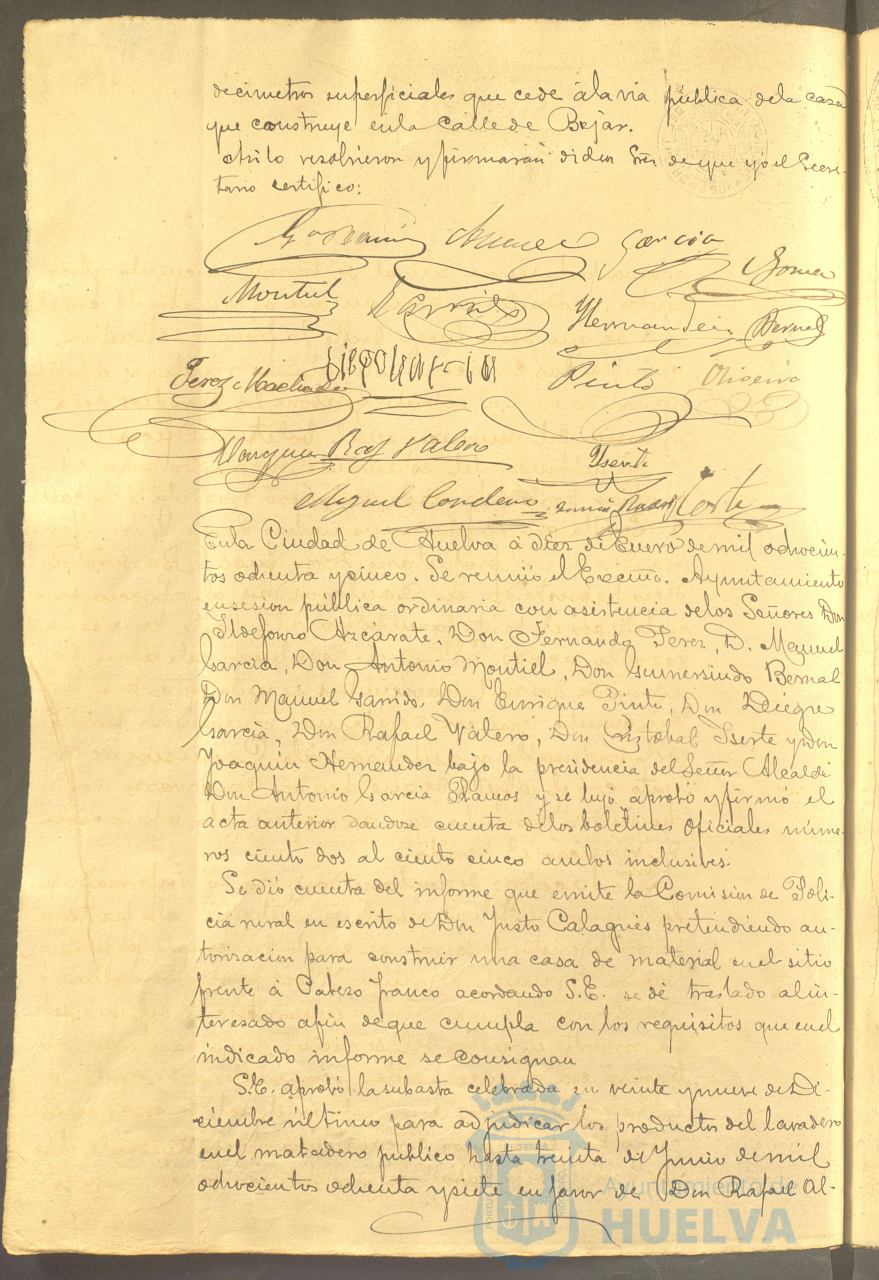 decimetros superficiales que cede á la via publica de la casa
que construye en la Calle de Bejar.
Asi lo resolvieron y firmaran dichos Sres. de que yo el Secre-
tario certifico:
Garcia Gomez
Montiel Garrido Hernandez Bernal
Perez Machado Pinto
Joaquin Roj Valero Yserte
Miguel Cordero
En la Ciudad de Huelva á diez de Enero de mil ochocien-
tos ochenta y cinco. Se reunió el Excmo. Ayuntamiento
en sesion pública ordinaria con asistencia de los Señores Don
Ildefonso Azcárate, Don Fernando Perez, D. Manuel
Garcia, Don Antonio Montiel, Don Gumersindo Bernal
Don Manuel Garrido, Don Enrique Pinto, Don Diego
Garcia, Don Rafael Valero, Don Cristobal Iserte y Don
Joaquin Hernandez bajo la presidencia del Señor Alcalde
Don Antonio Garcia Ramos y se leyó aprobó y firmó el
acta anterior dandose cuenta de los boletines oficiales núme-
ros ciento dos al ciento cinco ambos inclusives.
Se dió cuenta del informe que emite la Comision de Poli-
cia rural en escrito de Don Justo Calagnes pretendiendo au-
torizacion para construir una casa de material en el sitio
frente á Cabezo franco acordando S.E. se dé traslado al in-
teresado afin de que cumpla con los requisitos que en el
indicado informe se consignan
S.E. aprobó la subasta celebrada en veinte y nueve de Di-
ciembre último para adjudicar los productos del lavadero
en el matadero publico hasta treinta de Junio de mil
ochocientos ochenta y siete en favor de Don Rafael Al-
Ayuntamiento de
HUELVA